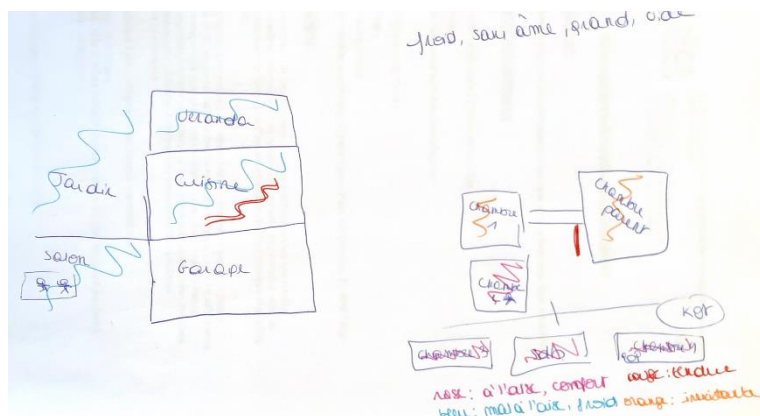 froid, sans âme, grand, vide
Veranda
Jardin
Cuisine
Salon
Garage
Chambre
1
Chambre
parent
Chambre
Kot
SdB
rose : à l'aise, confort rouge : tendue
bleu : mal à l'aise, froid orange : inexistante